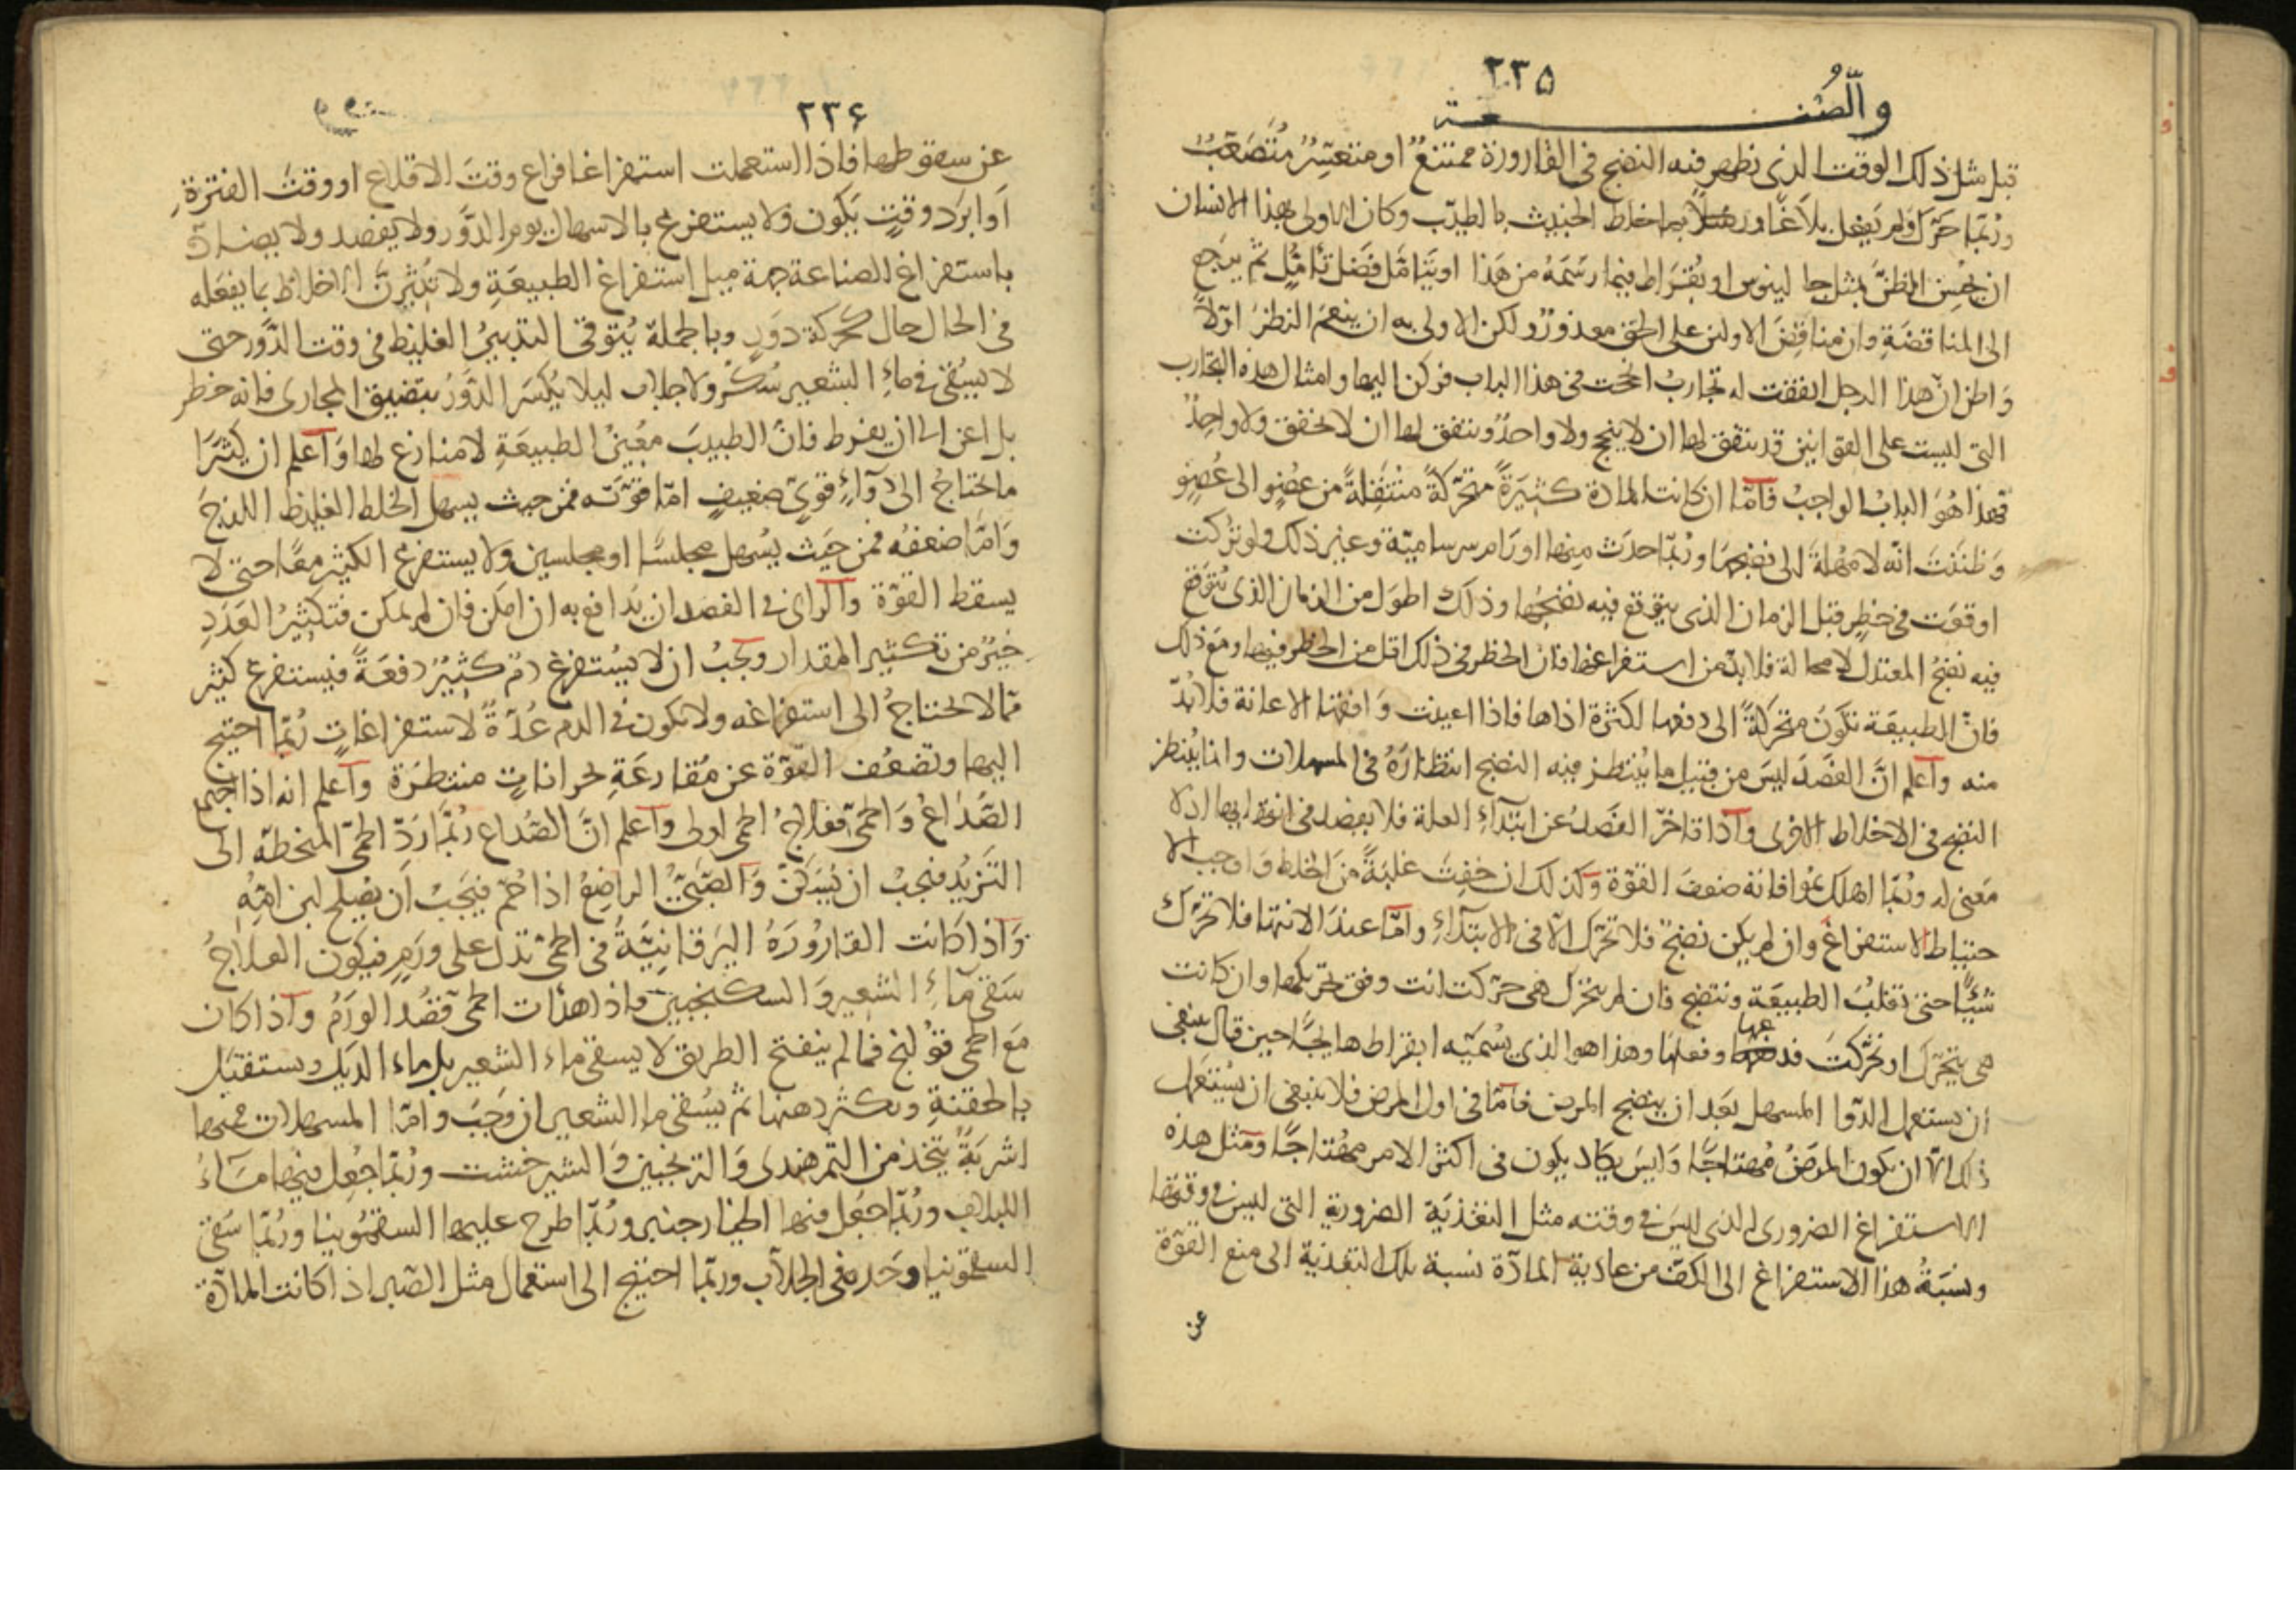 ٢٣٥
والصنعة
قبل مثل ذلك الوقت الذى يظهر فيه النضج فى القارورة ممتنعٌ او متعسِّرٌ مُتَصَعِّبٌ
ورُبَّما حَرَّكَ ولم يفعل بلاغًا وربما خلط الخبيث بالطيّب وكان الاولى بهذا الانسان
ان يحُسِنَ الظنَّ بمثل جالينوس او بُقْرَاط فيما رَسَمَهُ من هَذا او يَتَأمَّل فَضَل تأمُّلٍ ثم يرجع
الى المناقضَةِ وان مناقِضَ الاولين على الحق معذورٌ ولكن الاولى به ان ينعم النظرَ اوّلًا
وَاظن انّ هذا الرجل اتفقت له تجاربُ انجحت فى هذا الباب فركن اليها وامثال هذه التجارب
التى ليست على القوانين قد يتفق لها ان لا ينجح ولا واحدٌ ويتفق لها ان لا يخفق ولا واحِدٌ
فهذا هُوَ البابُ الواجبُ فامّا ان كانت المادة كثيَرةً متحرّكةً مُنْتَقِلةً من عضُوٍ الى عُضوٍ
وَظَننَتَ انّه لا مُهلةَ الى نضجها ورُبّما حدَث مِنها اورَام سرساميّة وغير ذلك ولو تركت
اوقعَت فى خطرٍ قبل الزمان الذى يتوقع فيه نضجُها وذلك اطوَل من الزمان الذى يُتوَقع
فيه نضجُ المعتدل لا محالة فلا بدّ من استفراغها فانّ الخطر فى ذلك اقل من الخطر فيها ومَع ذلك
فانّ الطبيعة تكَونُ متحركةً الى دفعها لكثرة اذاها فاذا اعينت وَافقتها الاعانة فلا بُدّ
منه واعلم انَّ الفصَدَ ليسَ من قبيل ما يُنتظر فيه النضج انتظارَهُ فى المسهلات وانما يُنتظر
النضج فى الاخلاط الاخرى واذا تاخرّ الفَصدُ عن ابتدآءِ العلة فلا يفصد فى انتهايها اذ لا
مَعنى له ورُبّما اهلك بمُوافاته ضعفَ القوّة وكذلك ان خفِتَ غلبَةً من الخلط وَاوجب الا
حتياط الاستفراغَ وان لم يكن نضجٌ فلا تحّرك الّا فى الابتدآءِ وامّا عندَ الانتها فلا تحّرك
شيئًا حتى تغلبَ الطبيعَة وتنضج فان لم يتحرّك هى حرّكت انت وفق تحريكها وان كانت
هى يتحرّك او تحرّكتَ فدعها وفعلَها وهذا هوا الذى يسُمّيَه ابقراط هايجًا حين قال ينبغى
ان يستعمل الدّوا المسهل بَعَد ان ينضج المرض فامّا فى اول المرض فلا ينبغى ان يُستعَمل
ذلك الّا ان يكون المرَضُ مُهتاجًا وَليسَ يكَاد يكون فى اكثر الامر مهُتاجًا ومثل هذه
الاستفراغ الضرورى له الذى ليسَ فى وقته مثل التغذيَة الضرورية التى ليس فى وقتها
ونسُبَةُ هذا الاستفراغ الى الكفّ من عادية المادّة نسبة تلك التغذية الى منع القوّة
عن
٢٣۶
عن سقوطها فاذا استعملت استفراغا فراع وقتَ الاقلاع او وقتُ الفترَةِ
اَو ابرَد وقتٍ يكون ولا يستفرغ بالاسهال يوم الدَّوَر ولا يفصد ولا يضادّ
باستفراغ الصناعة جهة ميل استفراغ الطبيعَةِ ولا تُثيِرَنَّ الاخلاط بما يفعَله
فى الحال حال كحركة دَورٍ وبالجملة يُتوقى التدبيُر الغليظ فى وقت الدَّور حتى
لا يسُقى فى ماءِ الشعير سُكّرٌ ولا جلاب ليلا يُكسَر الدَّوَرُ بتضيق المجارى فانه خطر
بل اعن الى ان يفرط فانّ الطبيبَ معُينُ الطبيعَةِ لا منازع لها وَاعلم ان كثيرَا
ما تحتاجُ الى دوآءٍ قوىٍّ ضعيفٍ امّا قوّته فمن حيث يسهل الخلط الغليظ اللزجَ
وَامّا ضعفهُ فمن حيَث يسُهل مجلسًا او مجلسين ولا يستفرغ الكثير معًا حتى لا
يسقط القوّة والراى فى الفصد ان يدافع به ان امكن فان لم يمكن فتكثيُر العَدَدِ
خيرٌ من تكثير المقدار ويجبُ ان لا يُستفرغ دَمٌ كثيرٌ دفعَةً فيستفرغ كثير
ممّا لا يحتاجُ الى استفراغه ولا يكون فى الدم عُدّةٌ لاستفراغاتٍ رُبّما احتيج
اليها وتضعُف القوّة عن مُقارعَةِ بحراناتٍ منتظَرة واعلم انه اذا اجتمع
الصُّدَاعُ وَالحمّى فعلاجُ الحمى اولى واعلم انَّ الصُّداع رُبّما ردّ الحمّى المنحطّة الى
التزيّد فيجبُ ان يُسَكَّنَ وَالصَّبىُّ الراضعُ اذا حُمّ فيَجبُ اَن يصُلح لبن امّه
وَاذا كانت القارُورَةُ اليرَقانِيّةُ فى الحمّى تدل على ورَمٍ فيكَون العلاجُ
سَقى مآءِ الشعير وَالسكنجبين واذا هدَات الحمى فصُد الورَمُ واذا كان
مَعَ الحمّى قوُلنج فما لم ينفتح الطريق لا يسقى ماء الشعير بل ماء الديك ويستقبَل
بالحقنةِ ويكثر دهنها ثم يسُقى ما الشعير ان وَجَبَ وامّا المسهلات فمنها
اشربَةٌ يتخذ من التمر هندى وَالترنجبين وَالشيرخشت ورُبّما جعُِل فيها مَاءُ
اللبلاب ورُبّما جعُل فيها الخيارجنبر ورُبّما طرح عليها السقمُونيا ورُبّما سَقى
السقمونيا وحَده فى الجلاّب وربّما احتيج الى استعمال مثل الصّبر اذا كانت المادّة